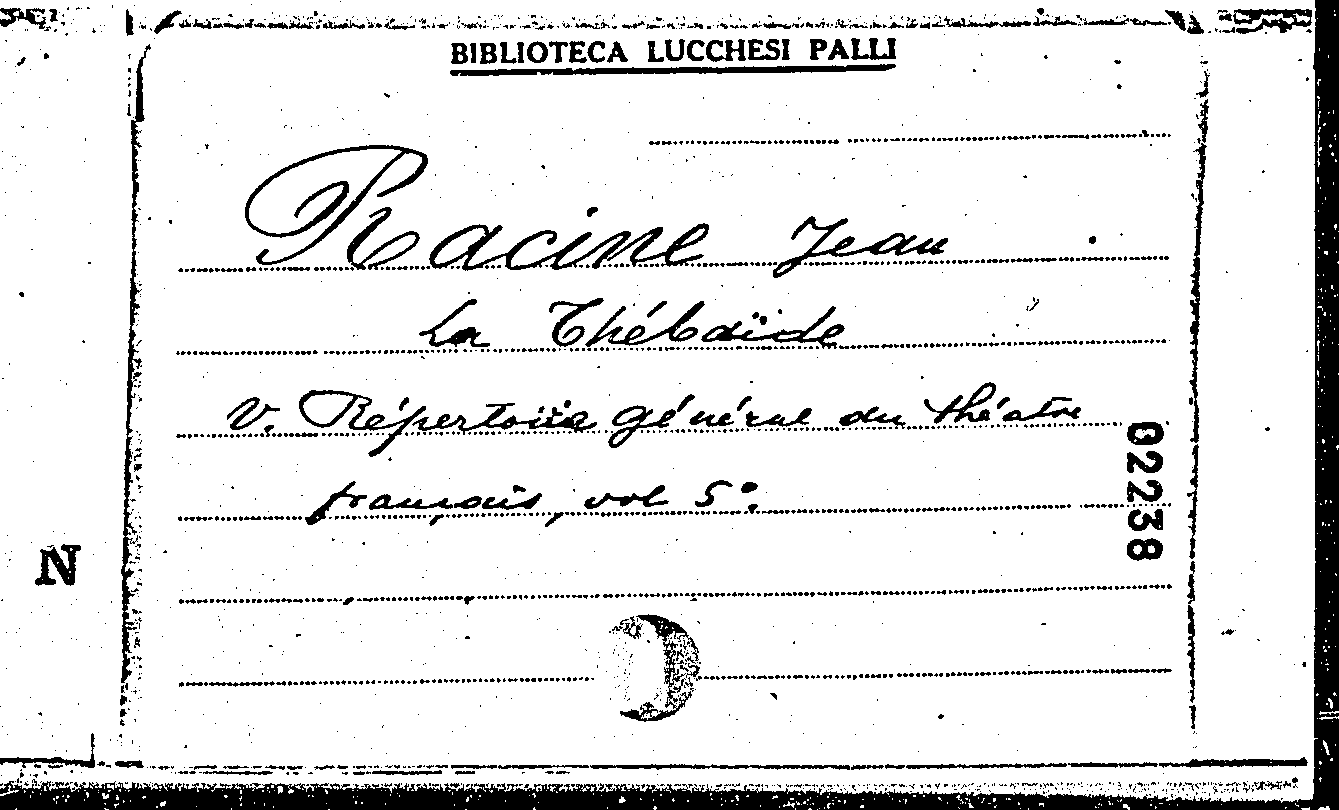 BIBLIOTECA LUCCHESI PALLI
Racine Jean
La Thébaïde
V. Répertoire général du théatre
français, vol 5°.
02238
N